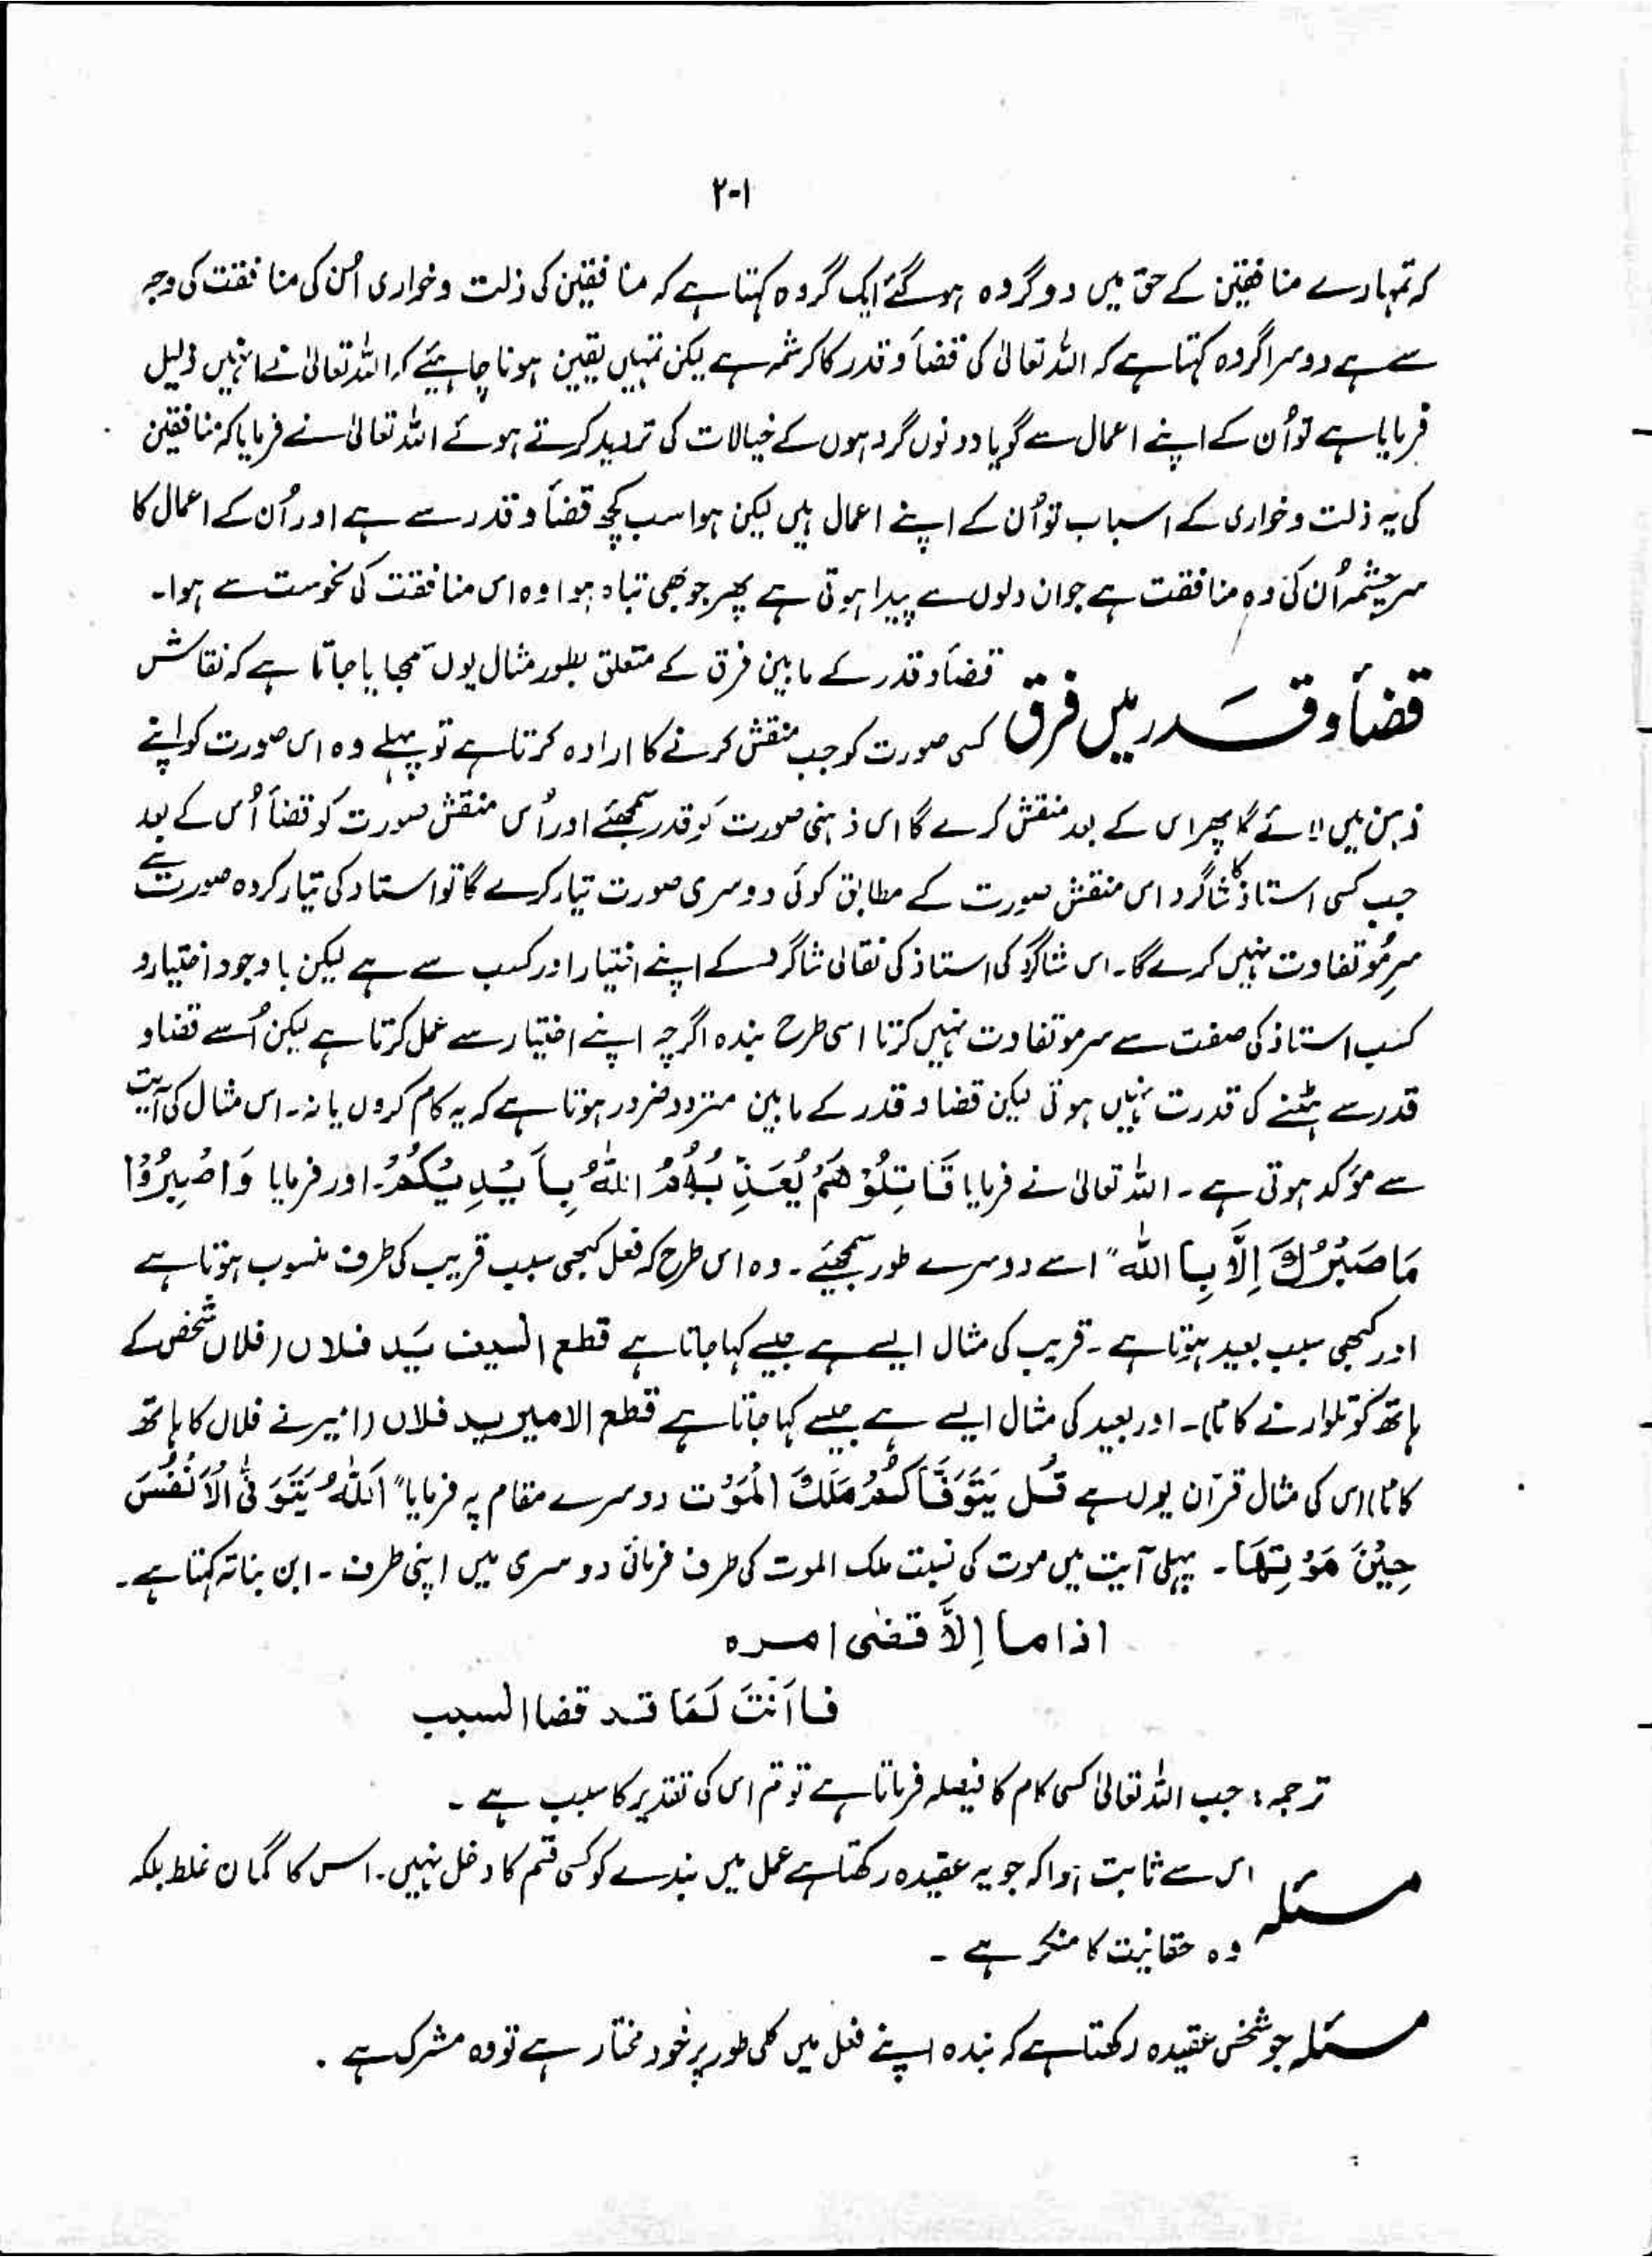 ۲۰۱
کہ تمہارے منافقین کے حق میں دو گروہ ہو گئے ایک گروہ کہتا ہے کہ منافقین کی ذلت و خواری اُن کی منافقت کی وجہ
سے ہے دوسرا گروہ کہتا ہے کہ اللہ تعالیٰ کی قضأ و قدر کا کرشمہ ہے لیکن تمہیں یقین ہونا چاہیئے کہ اللہ تعالیٰ نے انہیں ذلیل
فرمایا ہے تو اُن کے اپنے اعمال سے گویا دونوں گروہوں کے خیالات کی تردید کرتے ہوئے اللہ تعالیٰ نے فرمایا کہ منافقین
کی یہ ذلت و خواری کے اسباب تو اُن کے اپنے اعمال ہیں لیکن ہوا سب کچھ قضأ و قدر سے ہے اور اُن کے اعمال کا
سرچشمہ اُن کی وہ منافقت ہے جو ان دلوں سے پیدا ہوتی ہے پھر جو بھی تباہ ہوا وہ اسی منافقت کی نحوست سے ہوا۔
قضأ و قدر میں فرق
قضأ و قدر کے مابین فرق کے متعلق بطور مثال یوں سمجھایا جاتا ہے کہ نقاش
کسی صورت کو جب منقش کرنے کا ارادہ کرتا ہے تو پہلے وہ اس صورت کو اپنے
ذہن میں لائے گا پھر اس کے بعد منقش کرے گا اس ذہنی صورت کو قدر سمجھئے اور اُس منقش صورت کو قضأ اُس کے بعد
جب کسی استاذ کا شاگرد اس منقش صورت کے مطابق کوئی دوسری صورت تیار کرے گا تو استاد کی تیار کردہ صورت سے
سرِمُو تفاوت نہیں کرے گا۔ اس شاگرد کی استاذ کی نقالی شاگرد کے اپنے اختیار اور کسب سے ہے لیکن باوجود اختیار و
کسب استاذ کی صفت سے سرمو تفاوت نہیں کرتا اسی طرح بندہ اگرچہ اپنے اختیار سے عمل کرتا ہے لیکن اُسے قضا و
قدر سے ہٹنے کی قدرت نہیں ہوتی لیکن قضا و قدر کے مابین متردد ضرور ہوتا ہے کہ یہ کام کروں یا نہ۔ اس مثال کی آیت
سے مؤکد ہوتی ہے۔ اللہ تعالیٰ نے فرمایا قَاتِلُوْهُمْ يُعَذِّبْهُمُ اللّٰهُ بِاَيْدِيْكُمْ۔ اور فرمایا وَاصْبِرُوْا
مَا صَبْرُكَ اِلَّا بِا اللّٰه" اسے دوسرے طور سمجھئے۔ وہ اس طرح کہ فعل کبھی سبب قریب کی طرف منسوب ہوتا ہے
اور کبھی سبب بعید ہوتا ہے۔ قریب کی مثال ایسے ہے جیسے کہا جاتا ہے قطع السیف یَد فلاں (فلاں شخص کے
ہاتھ کو تلوار نے کاٹا)۔ اور بعید کی مثال ایسے ہے جیسے کہا جاتا ہے قطع الامیر ید فلاں (امیر نے فلاں کا ہاتھ
کاٹا) اس کی مثال قرآن یوں ہے قُل يَتَوَفَّاكُمْ مَلَكَ الْمَوْت دوسرے مقام پہ فرمایا" اَللّٰهُ يَتَوَفَّى الْاَنْفُسَ
حِيْنَ مَوْتِهَا۔ پہلی آیت میں موت کی نسبت ملک الموت کی طرف فرمائی دوسری میں اپنی طرف۔ ابن بناتہ کہتا ہے۔
اذا ما اِلاَّ قضی امره
فا اَنْتَ لَمَا قد قضا السبب
ترجمہ: جب اللہ تعالیٰ کسی کام کا فیصلہ فرماتا ہے تو تم اس کی تقدیر کا سبب ہے۔
مسئلہ اس سے ثابت ہوا کہ جو یہ عقیدہ رکھتا ہے عمل میں بندے کو کسی قسم کا دخل نہیں۔ اس کا گمان غلط بلکہ
وہ حقانیت کا منکر ہے۔
مسئلہ جو شخص عقیدہ رکھتا ہے کہ بندہ اپنے فعل میں کلی طور پر خود مختار ہے تو وہ مشرک ہے۔